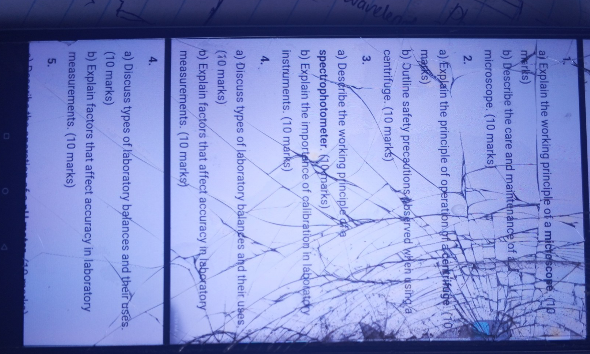 1.
a) Explain the working principle of a microscope. (10
marks)
b) Describe the care and maintenance of a
microscope. (10 marks)
2.
a) Explain the principle of operation of a centrifuge. (10
marks)
b) Outline safety precautions observed when using a
centrifuge. (10 marks)
3.
a) Describe the working principle of a
spectrophotometer. (10 marks)
b) Explain the importance of calibration in laboratory
instruments. (10 marks)
4.
a) Discuss types of laboratory balances and their uses.
(10 marks)
b) Explain factors that affect accuracy in laboratory
measurements. (10 marks)
4.
a) Discuss types of laboratory balances and their uses.
(10 marks)
b) Explain factors that affect accuracy in laboratory
measurements. (10 marks)
5.